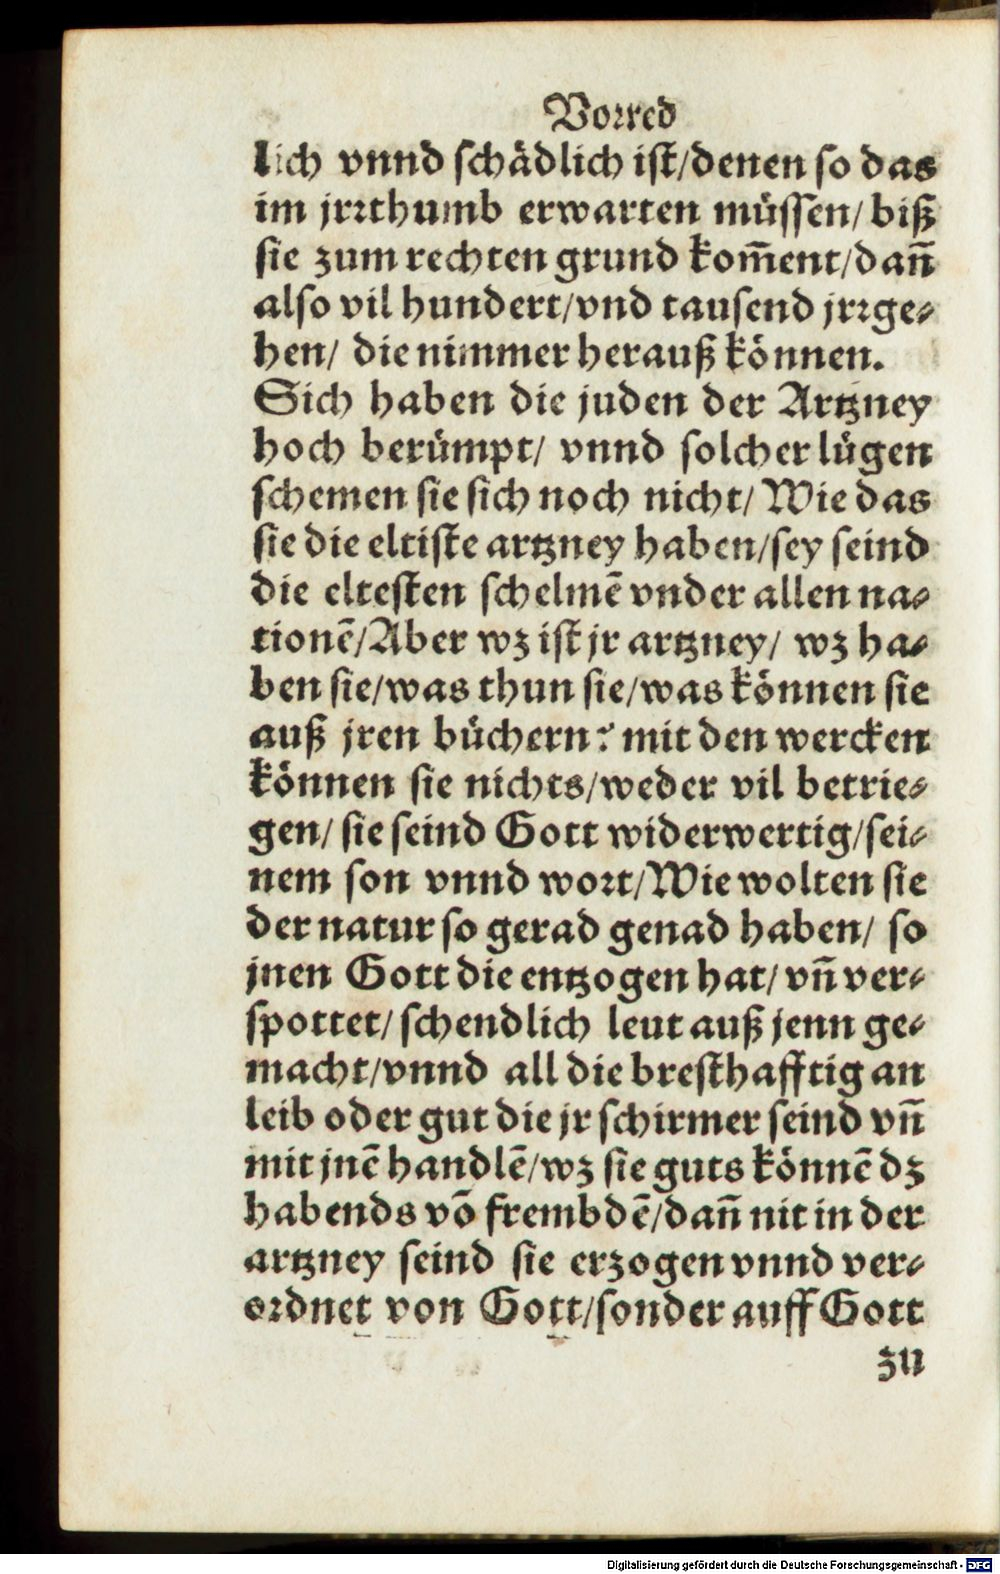 Vorred
lich vnnd schådlich ist/denen so das
im jrrthumb erwarten müssen/ biß
sie zum rechten grund kom̄ent/dañ
also vil hundert/vnd tausend jrrge⸗
hen/ die nimmer herauß können.
Sich haben die juden der Artzney
hoch berümpt/ vnnd solcher lügen
schemen sie sich noch nicht/ Wie das
sie die eltiste artzney haben/sey seind
die eltesten schelmē vnder allen na⸗
tionē/Aber wz ist jr artzney/ wz ha⸗
ben sie/was thun sie/was können sie
auß jren büchern? mit den wercken
können sie nichts/weder vil betrie⸗
gen/ sie seind Gott widerwertig/sei⸗
nem son vnnd wort/Wie wolten sie
der natur so gerad genad haben/ so
jnen Gott die entzogen hat/ vñ ver⸗
spottet/ schendlich leut auß jenn ge⸗
macht/vnnd all die bresthafftig an
leib oder gut die jr schirmer seind vñ
mit jnē handlē/wz sie guts könnē dz
habends võ frembdē/dañ nit in der
artzney seind sie erzogen vnnd ver⸗
ordnet von Gott/sonder auff Gott
zu
Digitalisierung gefördert durch die Deutsche Forschungsgemeinschaft - DFG